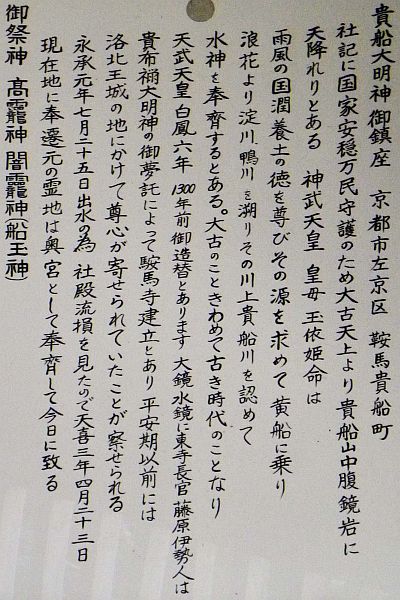 貴船大明神御鎮座 京都市左京区 鞍馬貴船町
社記に国家安穏万民守護のため大古天上より貴船山中腹鏡岩に
天降れりとある 神武天皇 皇母玉依姫命は
雨風の国潤養土の徳を尊びその源を求めて黄船に乗り
浪花より淀川、鴨川を溯りその川上貴船川を認めて
水神を奉齊するとある。大古のこときわめて古き時代のことなり
天武天皇 白鳳六年 1300年前御造替とあります 大鏡水鏡に東寺長官 藤原伊勢人は
貴布祢大明神の御夢託によって鞍馬寺建立とあり 平安期以前には
洛北王城の地にかけて尊心が寄せられていたことが察せられる
永承元年七月二十五日出水の為 社殿流損を見たので天喜三年四月二十三日
現在地に奉遷元の霊地は奥宮として奉齊して今日に致る
御祭神 高龗神 闇龗神(船玉神)